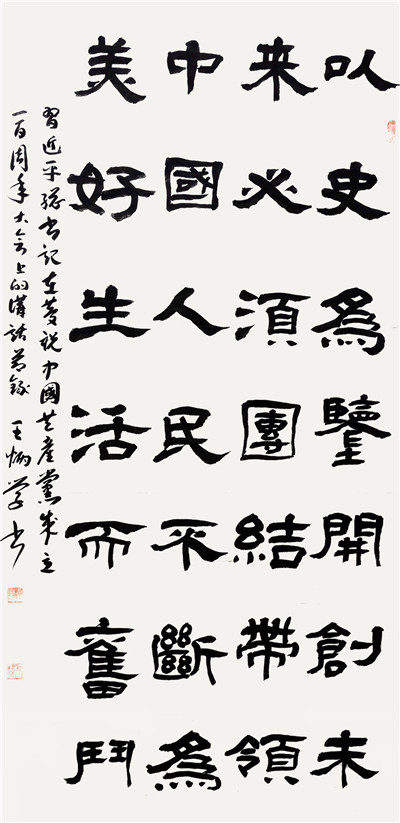 以史為鑒開創未
来必須團結帶領
中國人民不斷為
美好生活而奮鬥
習近平總书記在慶祝中國共產黨成立
一百周年大会上的講話節錄 王炳学书